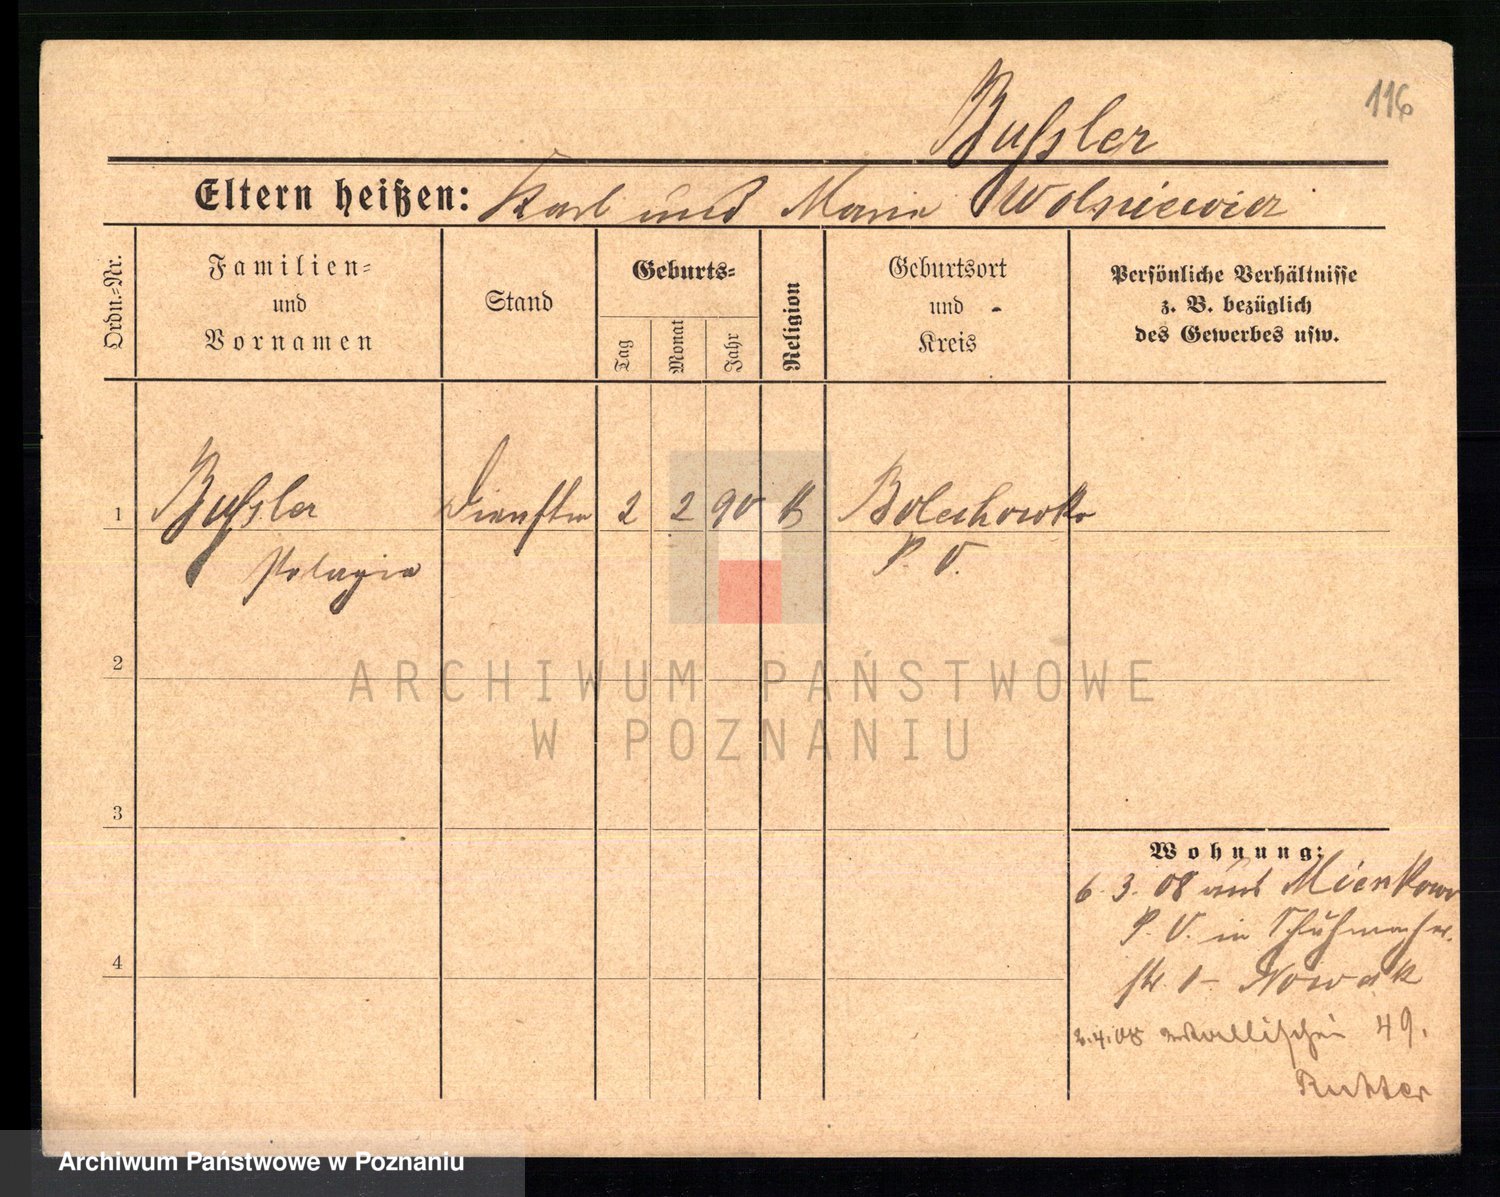 116
Bußler
Eltern heißen: Karl und Maria Wolniewicz
Ordn.-Nr.
Familien-
und
Vornamen
Stand
Geburts-
Tag
Monat
Jahr
Religion
Geburtsort
und
Kreis
Persönliche Verhältnisse
z. B. bezüglich
des Gewerbes usw.
1 Bußler Dienstm 2 2 90 k Bolechowko
Pelagia P. O.
2
ARCHIWUM PAŃSTWOWE
W POZNANIU
3
Wohnung:
6. 3. 08 aus
P. O. in Schuhmacher
str. 1 - Nowak
4
2.4.08 Wallischei 49.
Archiwum Państwowe w Poznaniu